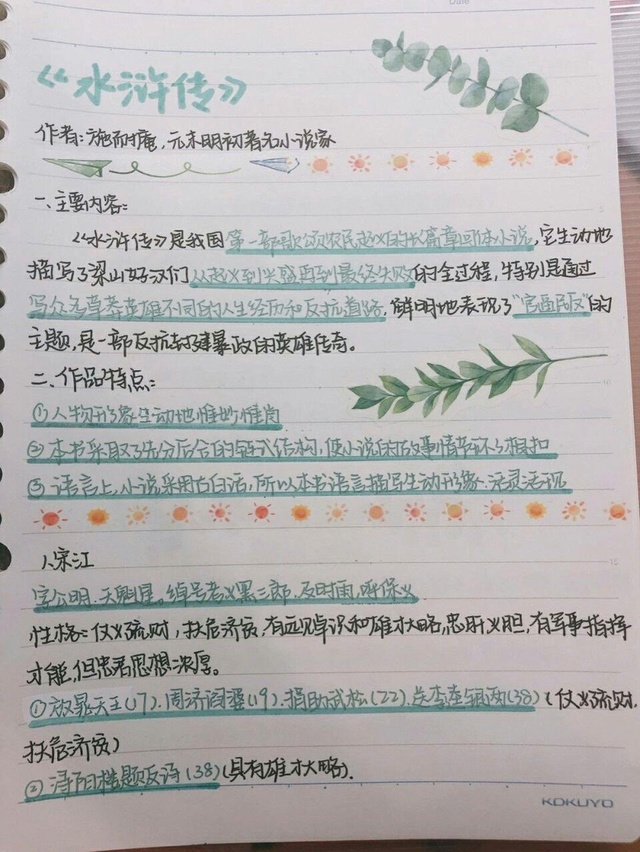 Date
《水浒传》
作者:施耐庵,元末明初著名小说家
一、主要内容:
《水浒传》是我国第一部歌颂农民起义的长篇章回体小说,它生动地
描写了梁山好汉们从起义到兴盛再到最终失败的全过程,特别是通过
写众多草莽英雄不同的人生经历和反抗道路,鲜明地表现了"官逼民反"的
主题,是一部反抗封建暴政的英雄传奇。
二、作品特点:
①人物形象生动地惟妙惟肖
②本书采取了先分后合的链式结构,使小说的故事情节环环相扣
③语言上,小说采用古白话,所以本书语言描写生动形象、活灵活现
1、宋江
字公明、天魁星。绰号孝义黑三郎、及时雨、呼保义
性格:仗义疏财,扶危济贫,有远见卓识和雄才大略,忠肝义胆,有军事指挥
才能,但忠君思想浓厚。
①放晁天王(17)、周济阎婆(19)、捐助武松(22)、送李逵银两(38)(仗义疏财,
扶危济贫)
②浔阳楼题反诗(38)(具有雄才大略).
KOKUYO